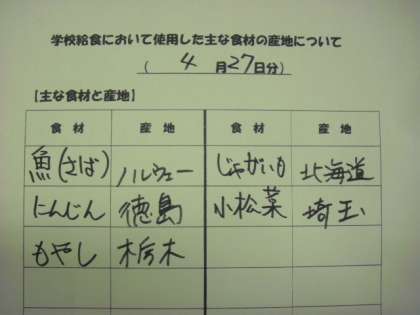 学校給食において使用した主な食材の産地について
( 4 月 27日分)
【主な食材と産地】
食材 産地 食材 産地
魚(さば) ノルウェー じゃがいも 北海道
にんじん 徳島 小松菜 埼玉
もやし 栃木